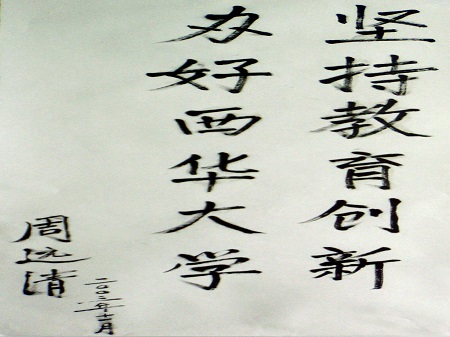 坚持教育创新
办好西华大学
周远清
二〇〇三年十二月